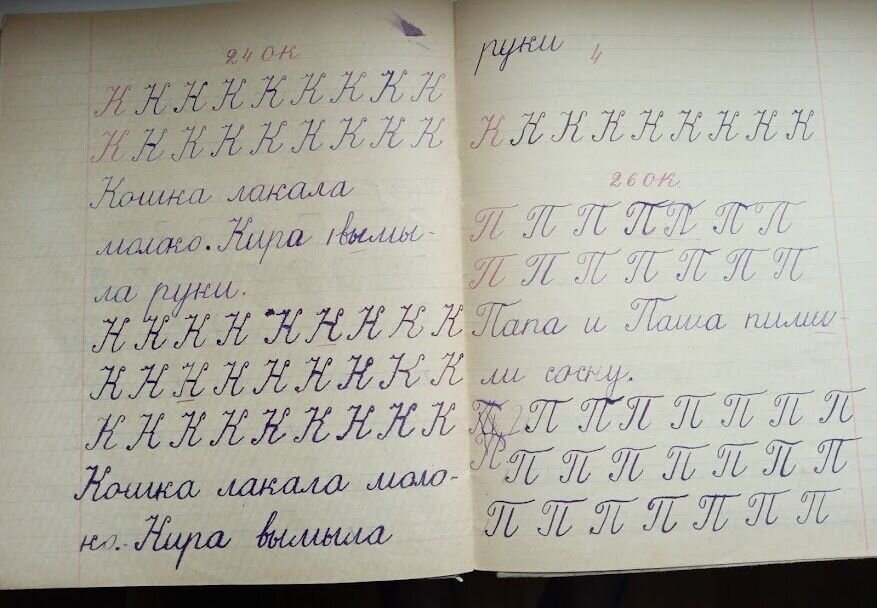 24 ок
К К К К К К К К К
К К К К К К К К К
Кошка лакала
молоко. Кира вымы-
ла руки.
К К К К К К К К К
К К К К К К К К К
К К К К К К К К К
Кошка лакала моло-
ко. Кира вымыла
руки
4
К К К К К К К К К
26 ок
П П П П П П П
П П П П П П П
Папа и Паша пили-
ли сосну.
П П П П П П П П
П П П П П П П П
П П П П П П П